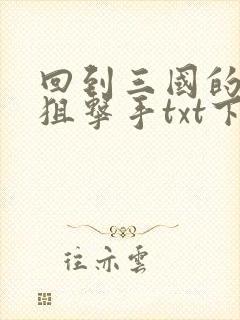 回到三國的
狙擊手txt下
往亦雲